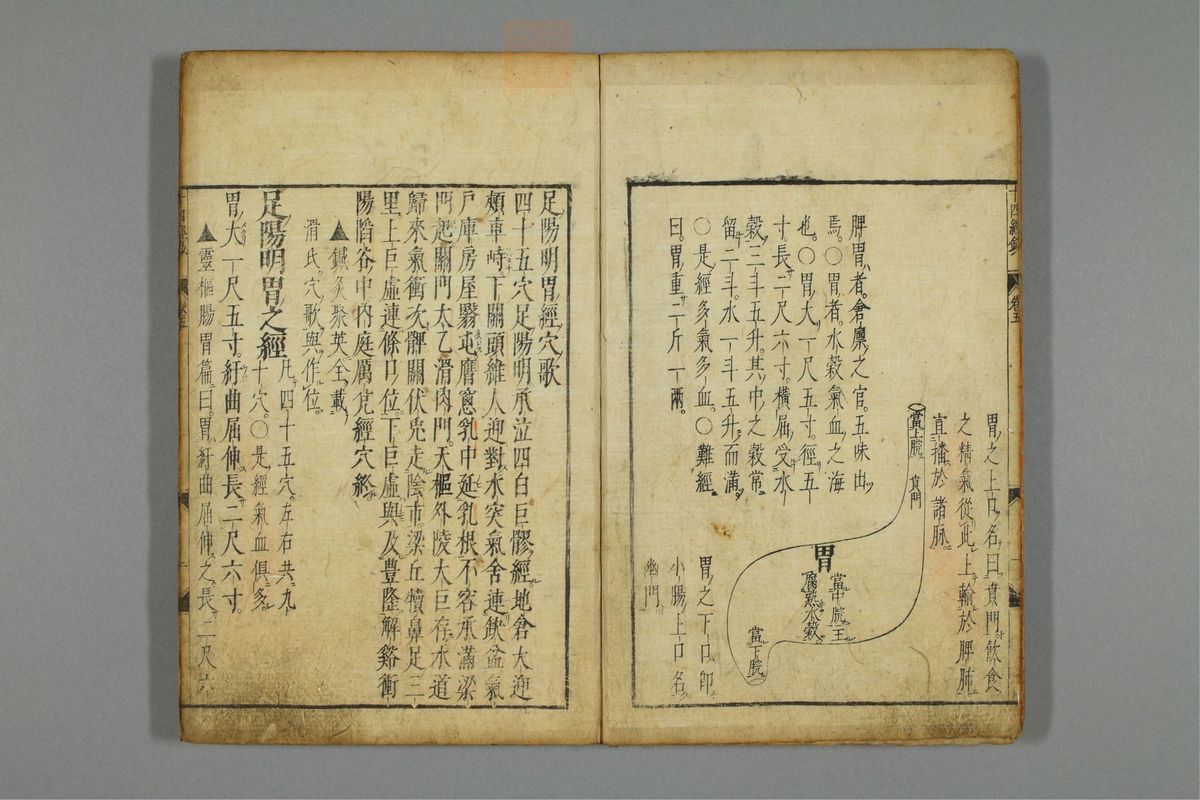 十四經鈔 卷五
脾胃者。倉廩之官。五味出
焉。〇胃者。水穀氣血之海
也。〇胃大一尺五寸。徑五
寸。長二尺六寸。橫屈受水
穀三斗五升。其中之穀常
留二斗。水一斗五升而滿。
〇是經多氣多血。〇難經
曰。胃重二斤一兩。
胃之上口名曰賁門飲食
之精氣從此上輸於脾肺
直播於諸脉
當上脘
賁門
胃
當中脘主
腐熟水穀
當下脘
胃之下口即
小腸上口名
幽門
足陽明胃經穴歌
四十五穴足陽明承泣四白巨髎經地倉大迎
頰車峙下關頭維人迎對水突氣舍連缺盆氣
戶庫房屋翳屯膺窓乳中延乳根不容承滿梁
門起關門太乙滑肉門。天樞外陵大巨存水道
歸來氣衝次髀關伏兎走陰市梁丘犢鼻足三
里上巨虛連條口位下巨虛與及豊隆解谿衝
陽陷谷中內庭厲兌經穴終
▲鍼灸聚英全載
滑氏穴歌與作位。
足陽明胃之經
凡四十五穴。左右共九
十穴。〇是經氣血俱多
胃大一尺五寸。紆曲屈伸長二尺六寸。
▲靈樞腸胃篇曰。胃紆曲屈伸之長二尺六